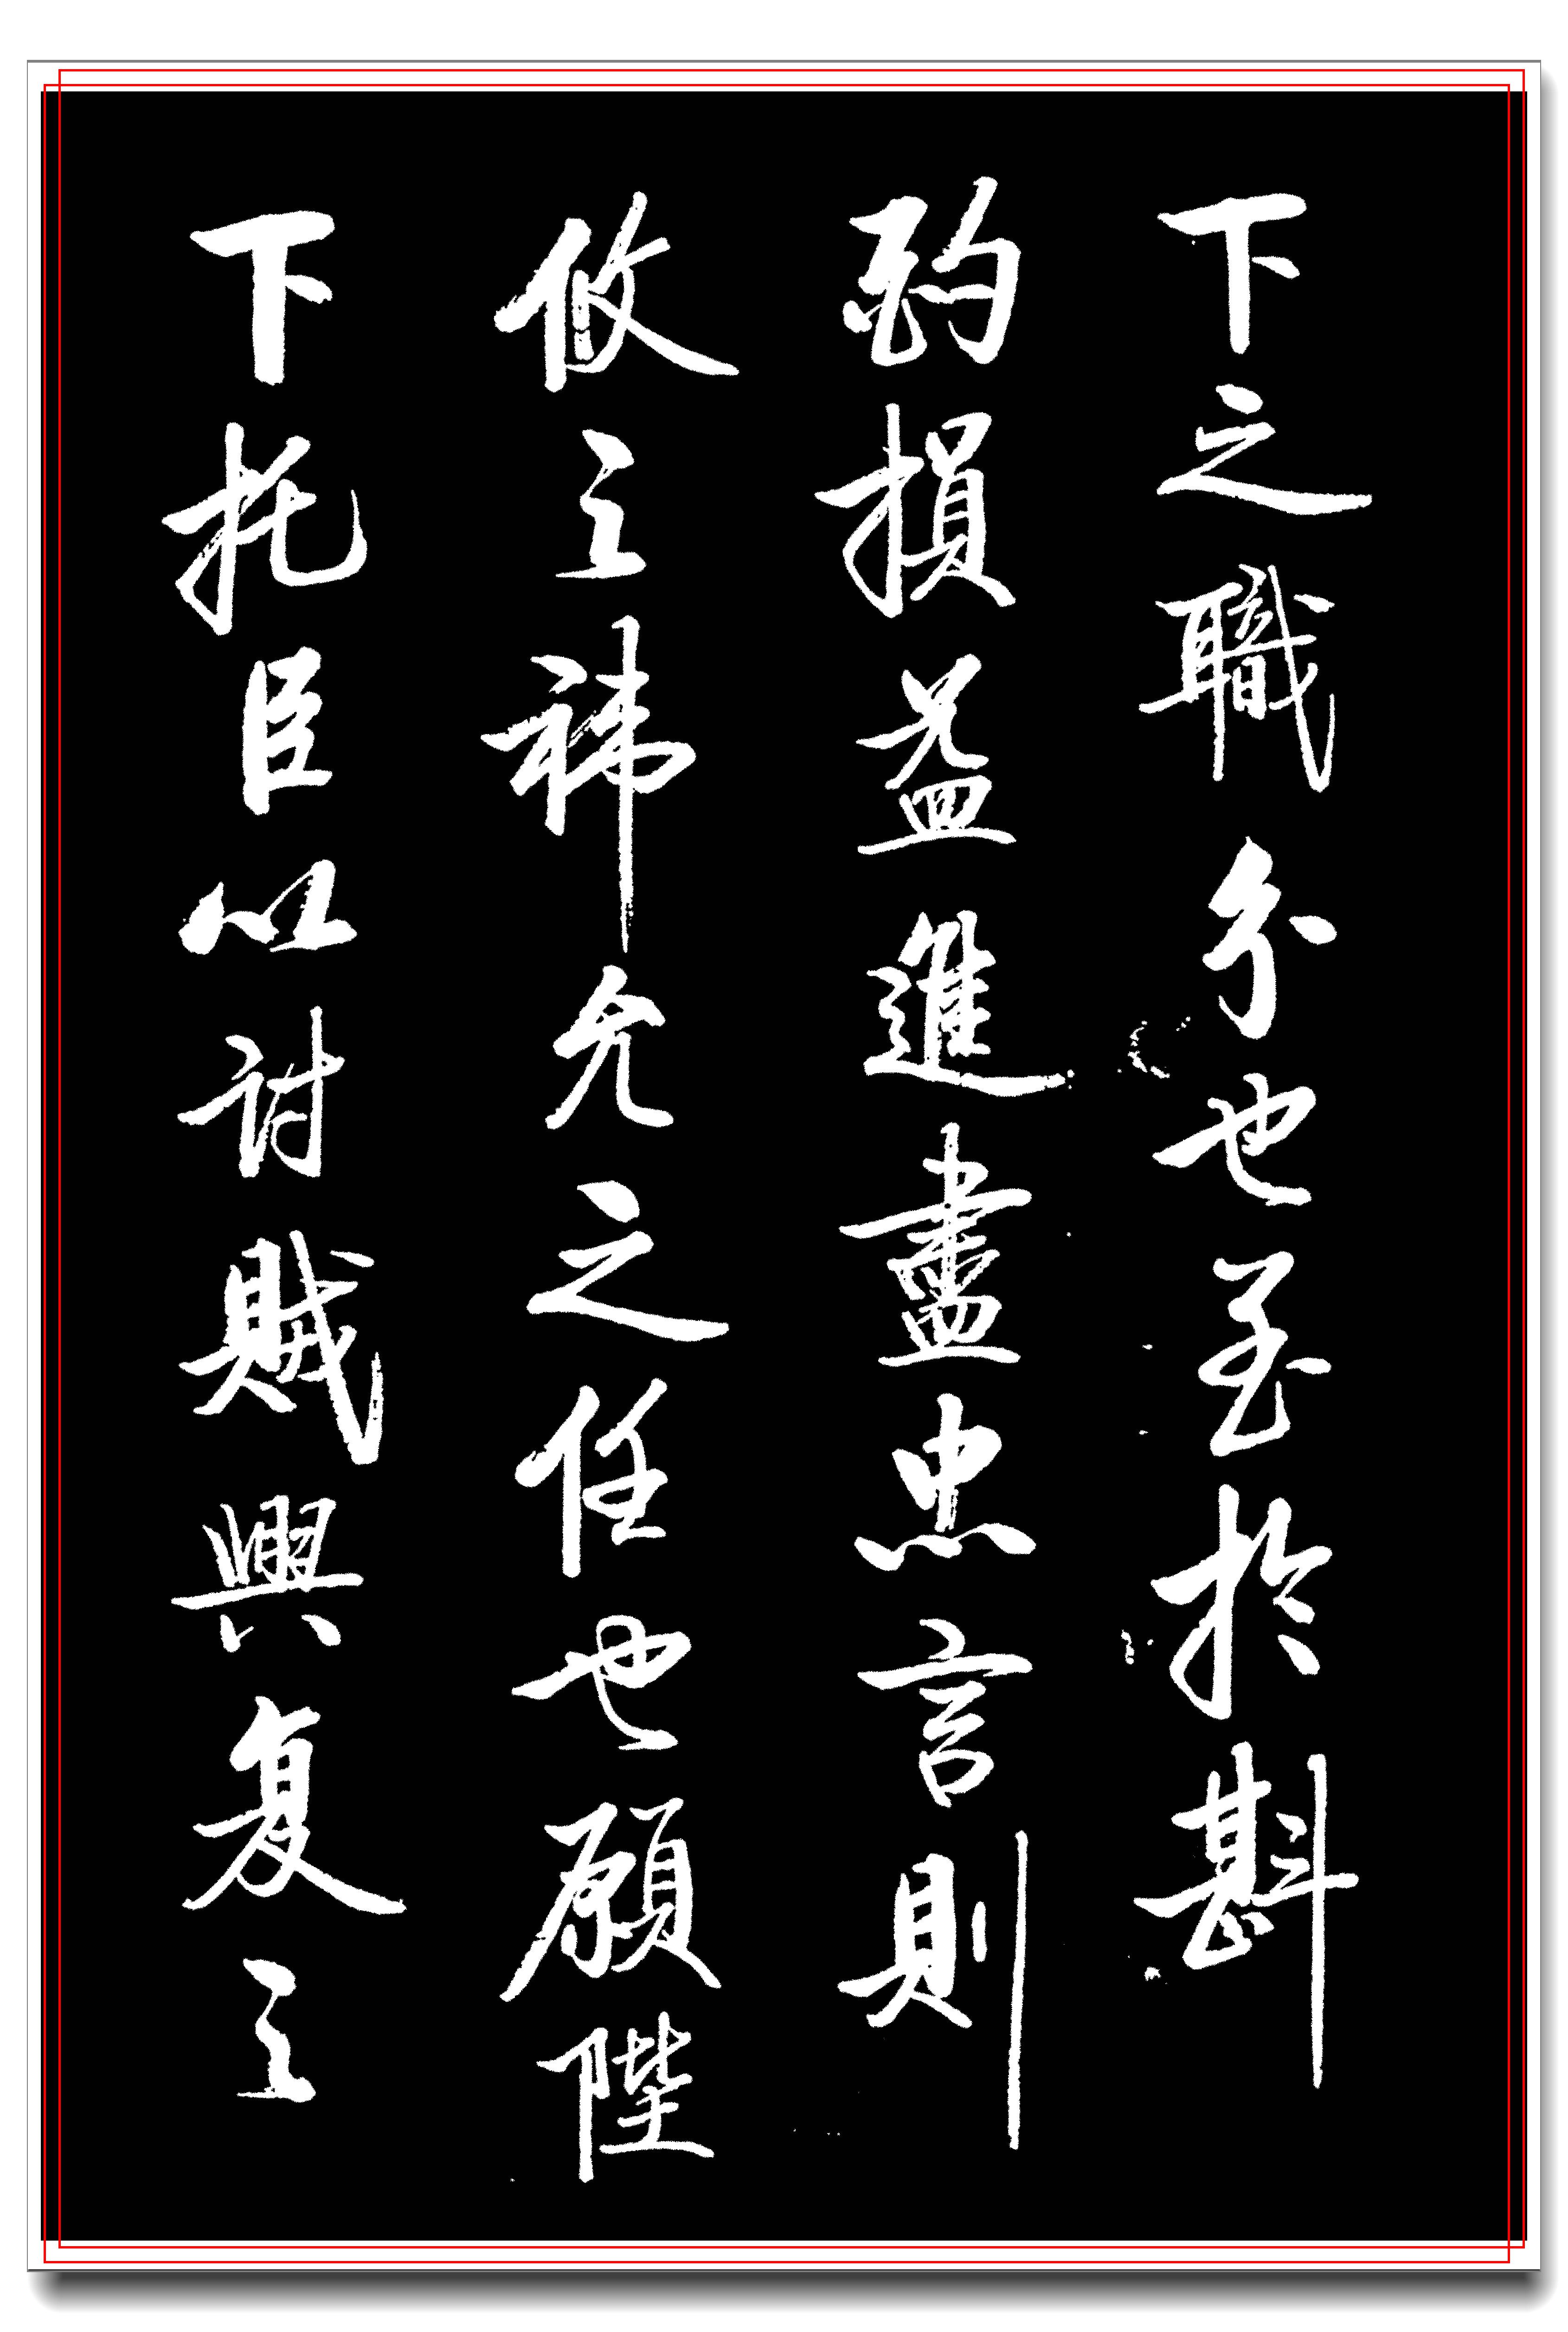 下之職分也至於斟
酌損益進盡忠言則
攸之褘允之任也願陛
下托臣以討賊興复之